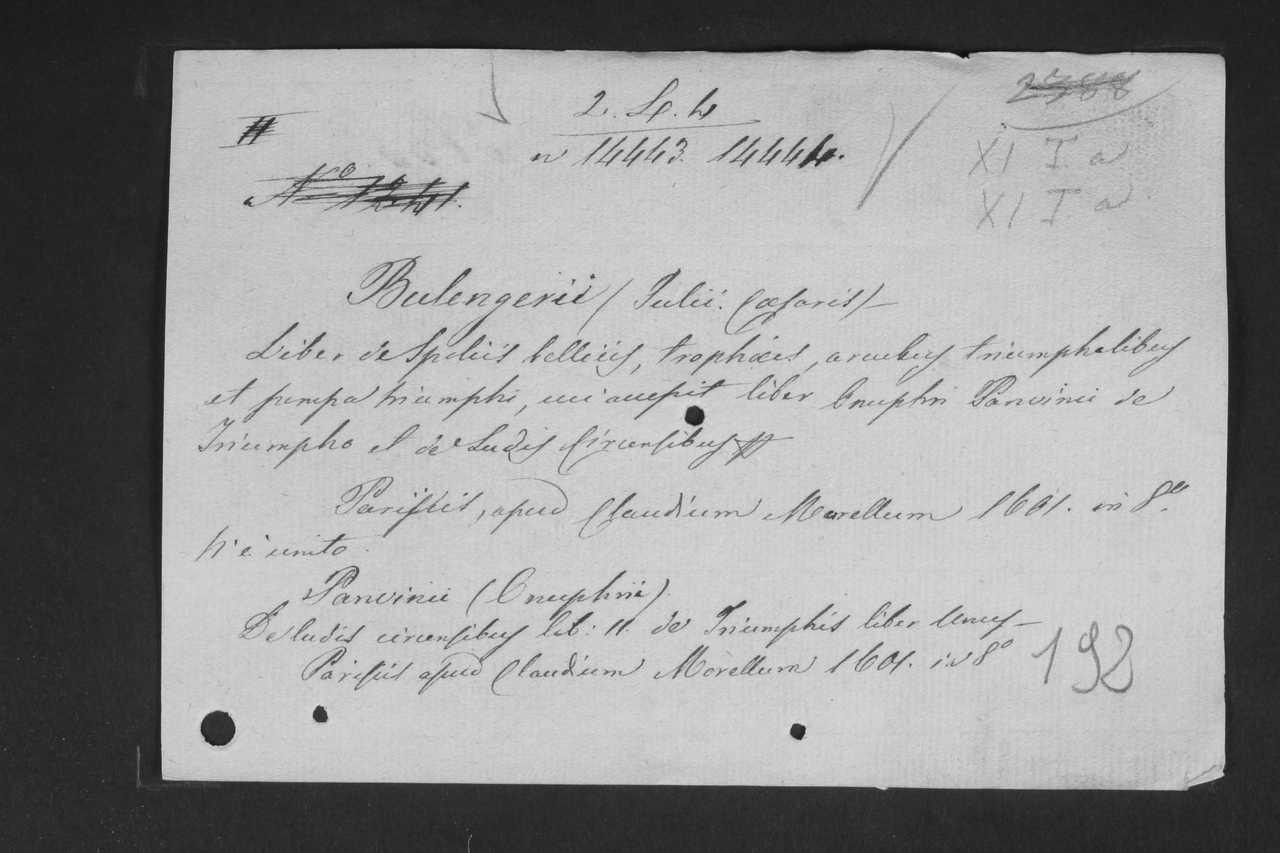 2788
2. L. h
n 14443. 14444.
XI I a
XI I a
No 1241.
Bulengerii (Julii. Cæsaris)—
Liber de Spoliis bellicis, trophæis, arcubus triumphalibus
et pompa triumphi, cui accepit liber Onuphrii Panvinii de
Triumpho et de Ludis Circensibus
Parisiis, apud Claudium Morellum 1601. in 8º
Vi è unito.
Panvinii (Onuphrii).
De ludis circensibus lib: II. de Triumphis liber Unus—
Parisiis apud Claudium Morellum 1601. in 8º
192